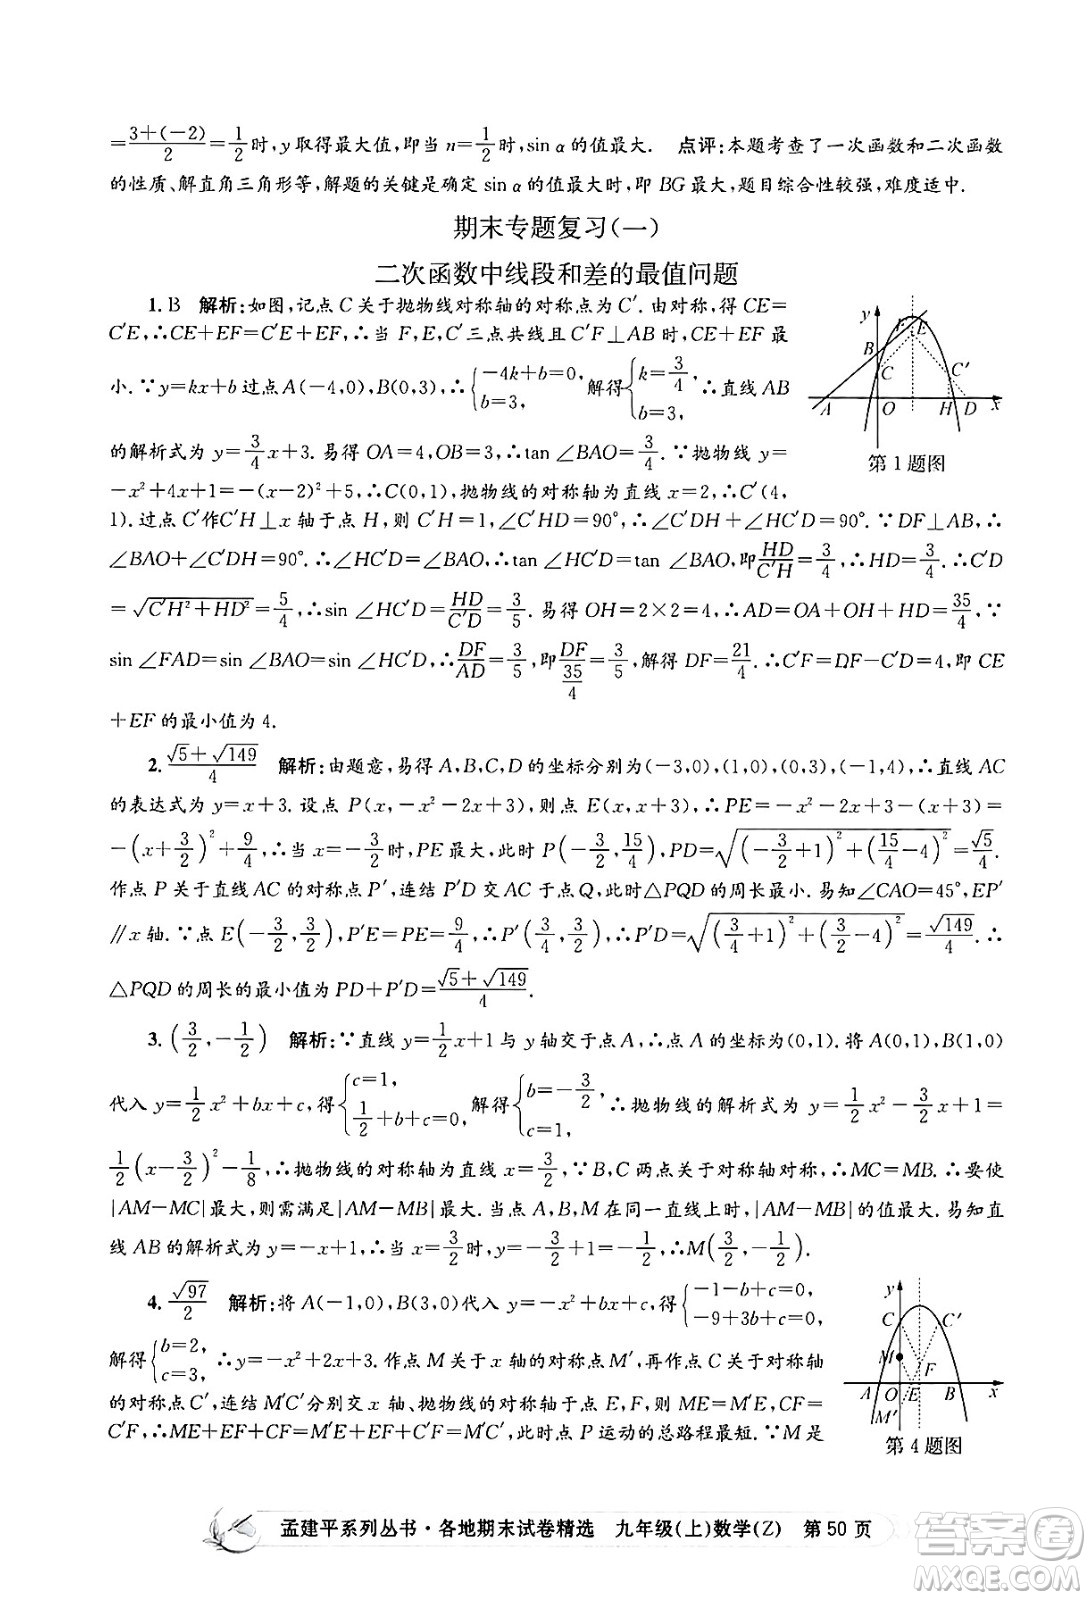 =\frac{3+(-2)}{2}=\frac{1}{2}时,y取得最大值,即当 n=\frac{1}{2}时,sin α的值最大. 点评:本题考查了一次函数和二次函数
的性质、解直角三角形等,解题的关键是确定 sin α的值最大时,即 BG最大,题目综合性较强,难度适中.
期末专题复习(一)
二次函数中线段和差的最值问题
1. B 解析:如图,记点 C 关于抛物线对称轴的对称点为 C′. 由对称,得 CE=
C′E,∴CE+EF=C′E+EF,∴当 F,E,C′三点共线且 C′F⊥AB 时,CE+EF 最
小. ∵y=kx+b过点A(-4,0),B(0,3),∴{-4k+b=0, b=3, 解得{k=\frac{3}{4}, b=3, ∴直线AB
的解析式为 y=\frac{3}{4}x+3. 易得 OA=4,OB=3,∴tan ∠BAO=\frac{3}{4}. ∵抛物线 y=
-x²+4x+1=-(x-2)²+5,∴C(0,1),抛物线的对称轴为直线x=2,∴C′(4,
1). 过点 C′作C′H⊥x 轴于点 H,则 C′H=1,∠C′HD=90°,∴∠C′DH+∠HC′D=90°. ∵DF⊥AB,∴
∠BAO+∠C′DH=90°,∴∠HC′D=∠BAO,∴tan ∠HC′D=tan ∠BAO,即\frac{HD}{C′H}=\frac{3}{4},∴HD=\frac{3}{4}. ∴C′D
=\sqrt{C′H²+HD²}=\frac{5}{4},∴sin ∠HC′D=\frac{HD}{C′D}=\frac{3}{5}. 易得 OH=2×2=4,∴AD=OA+OH+HD=\frac{35}{4},∵
sin ∠FAD=sin ∠BAO=sin ∠HC′D,∴\frac{DF}{AD}=\frac{3}{5},即\frac{DF}{\frac{35}{4}}=\frac{3}{5},解得 DF=\frac{21}{4}. ∴C′F=DF-C′D=4,即 CE
+EF 的最小值为 4.
2. \frac{\sqrt{5}+\sqrt{149}}{4} 解析:由题意,易得A,B,C,D的坐标分别为(-3,0),(1,0),(0,3),(-1,4),∴直线AC
的表达式为 y=x+3. 设点 P(x,-x²-2x+3),则点 E(x,x+3),∴PE=-x²-2x+3-(x+3)=
-(x+\frac{3}{2})²+\frac{9}{4},∴当 x=-\frac{3}{2}时,PE 最大,此时 P(-\frac{3}{2},\frac{15}{4}),PD=\sqrt{(-\frac{3}{2}+1)²+(\frac{15}{4}-4)²}=\frac{\sqrt{5}}{4}.
作点 P 关于直线AC 的对称点 P′,连结 P′D 交 AC 于点Q,此时△PQD 的周长最小. 易知∠CAO=45°,EP′
∥x 轴. ∵点 E(-\frac{3}{2},\frac{3}{2}),P′E=PE=\frac{9}{4},∴P′(\frac{3}{4},\frac{3}{2}),∴P′D=\sqrt{(\frac{3}{4}+1)²+(\frac{3}{2}-4)²}=\frac{\sqrt{149}}{4}. ∴
△PQD 的周长的最小值为 PD+P′D=\frac{\sqrt{5}+\sqrt{149}}{4}.
3. (\frac{3}{2},-\frac{1}{2}) 解析:∵直线 y=\frac{1}{2}x+1 与 y轴交于点 A,∴点 A 的坐标为(0,1). 将A(0,1),B(1,0)
代入 y=\frac{1}{2}x²+bx+c,得{c=1, \frac{1}{2}+b+c=0, 解得{b=-\frac{3}{2}, c=1, ∴抛物线的解析式为 y=\frac{1}{2}x²-\frac{3}{2}x+1=
\frac{1}{2}(x-\frac{3}{2})²-\frac{1}{8},∴抛物线的对称轴为直线 x=\frac{3}{2}. ∵B,C 两点关于对称轴对称,∴MC=MB. ∴要使
|AM-MC|最大,则需满足|AM-MB|最大. 当点A,B,M 在同一直线上时,|AM-MB|的值最大. 易知直
线 AB 的解析式为 y=-x+1,∴当 x=\frac{3}{2}时,y=-\frac{3}{2}+1=-\frac{1}{2},∴M(\frac{3}{2},-\frac{1}{2}).
4. \frac{\sqrt{97}}{2} 解析:将 A(-1,0),B(3,0)代入 y=-x²+bx+c,得{-1-b+c=0, -9+3b+c=0,
解得{b=2, c=3, ∴y=-x²+2x+3. 作点 M 关于x轴的对称点M′,再作点C关于对称轴
的对称点 C′,连结 M′C′分别交 x 轴、对称轴于点 E,F,则 ME=M′E,CF=
C′F,∴ME+EF+CF=M′E+EF+C′F=M′C′,此时点 P 运动的总路程最短. ∵M是
y
F
E
B
C
C′
A
O
H
D
x
第 1 题图
y
C
C′
M
F
A
O
E
B
x
M′
第 4 题图
孟建平系列丛书·各地期末试卷精选 九年级(上)数学(Z) 第 50 页
答案圈
MXQE.COM